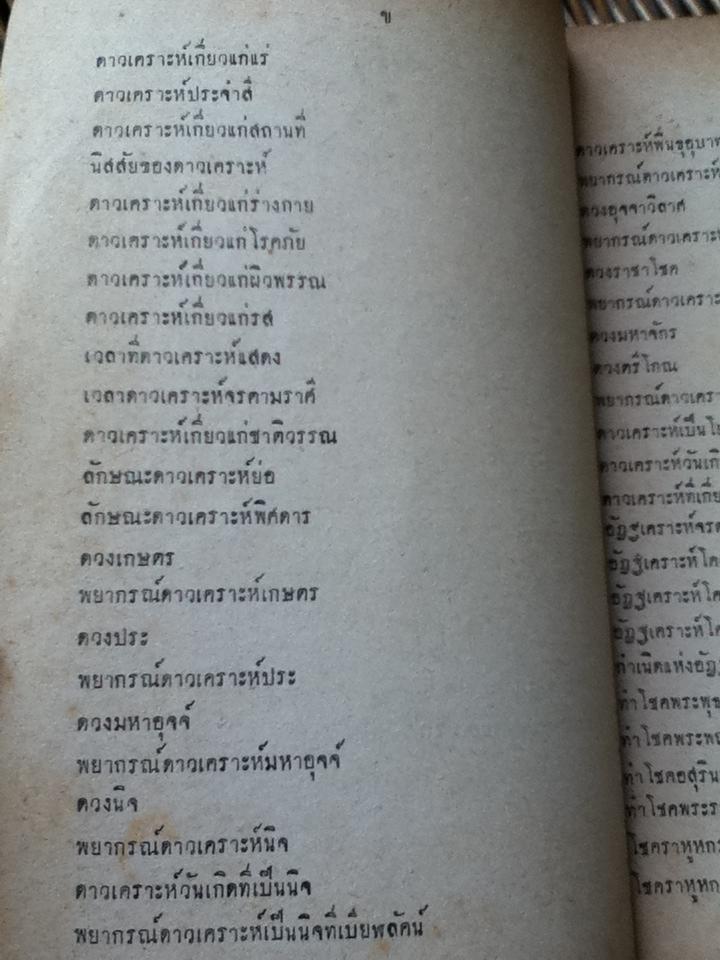 ข
ดาวเคราะห์เกี่ยวแก่แร่
ดาวเคราะห์ประจำสี
ดาวเคราะห์เกี่ยวแก่สถานที่
นิสสัยของดาวเคราะห์
ดาวเคราะห์เกี่ยวแก่ร่างกาย
ดาวเคราะห์เกี่ยวแก่โรคภัย
ดาวเคราะห์เกี่ยวแก่ผิวพรรณ
ดาวเคราะห์เกี่ยวแก่รส
เวลาที่ดาวเคราะห์แสดง
เวลาดาวเคราะห์จรตามราศี
ดาวเคราะห์เกี่ยวแก่ชาติวรรณ
ลักษณะดาวเคราะห์ย่อ
ลักษณะดาวเคราะห์พิศดาร
ดวงเกษตร
พยากรณ์ดาวเคราะห์เกษตร
ดวงประ
พยากรณ์ดาวเคราะห์ประ
ดวงมหาอุจจ์
พยากรณ์ดาวเคราะห์มหาอุจจ์
ดวงนิจ
พยากรณ์ดาวเคราะห์นิจ
ดาวเคราะห์วันเกิดที่เป็นนิจ
พยากรณ์ดาวเคราะห์เป็นนิจที่เบียฬลัคน์
พยากรณ์ดาวเคราะห์
ดวงอุจจาวิลาศ
พยากรณ์ดาวเคราะ
ดวงราชาโชค
พยากรณ์ดาวเคราะ
ดวงมหาจักร
ดวงตรีโกณ
พยากรณ์ดาวเครา
ดาวเคราะห์เป็น
ดาวเคราะห์วันเกิ
ดาวเคราะห์ที่เกี่ย
อัฏฐเคราะห์จร
อัฏฐเคราะห์โค
อัฏฐเคราะห์โค
อัฏฐเคราะห์โค
กำเนิดแห่งอัฏ
ทำโชคพระพุธ
ทำโชคพระพ
ทำโชคอสุริน
ทำโชคพระร
โชคราหูหก
โชคราหูหก